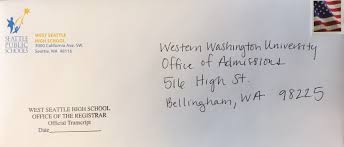 SEATTLE
PUBLIC
SCHOOLS
WEST SEATTLE
HIGH SCHOOL
3000 California Ave. SW
Seattle, WA 98116
Western Washington University
Office of Admissions
516 High St.
Bellingham, WA 98225
WEST SEATTLE HIGH SCHOOL
OFFICE OF THE REGISTRAR
Official Transcript
Date